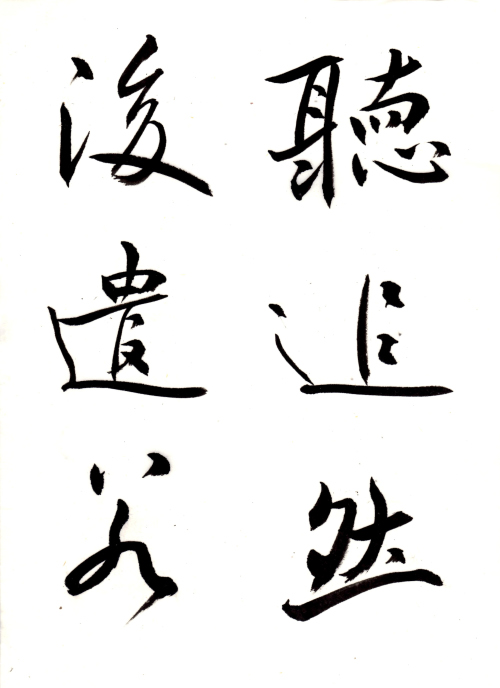 聴追然
後遣